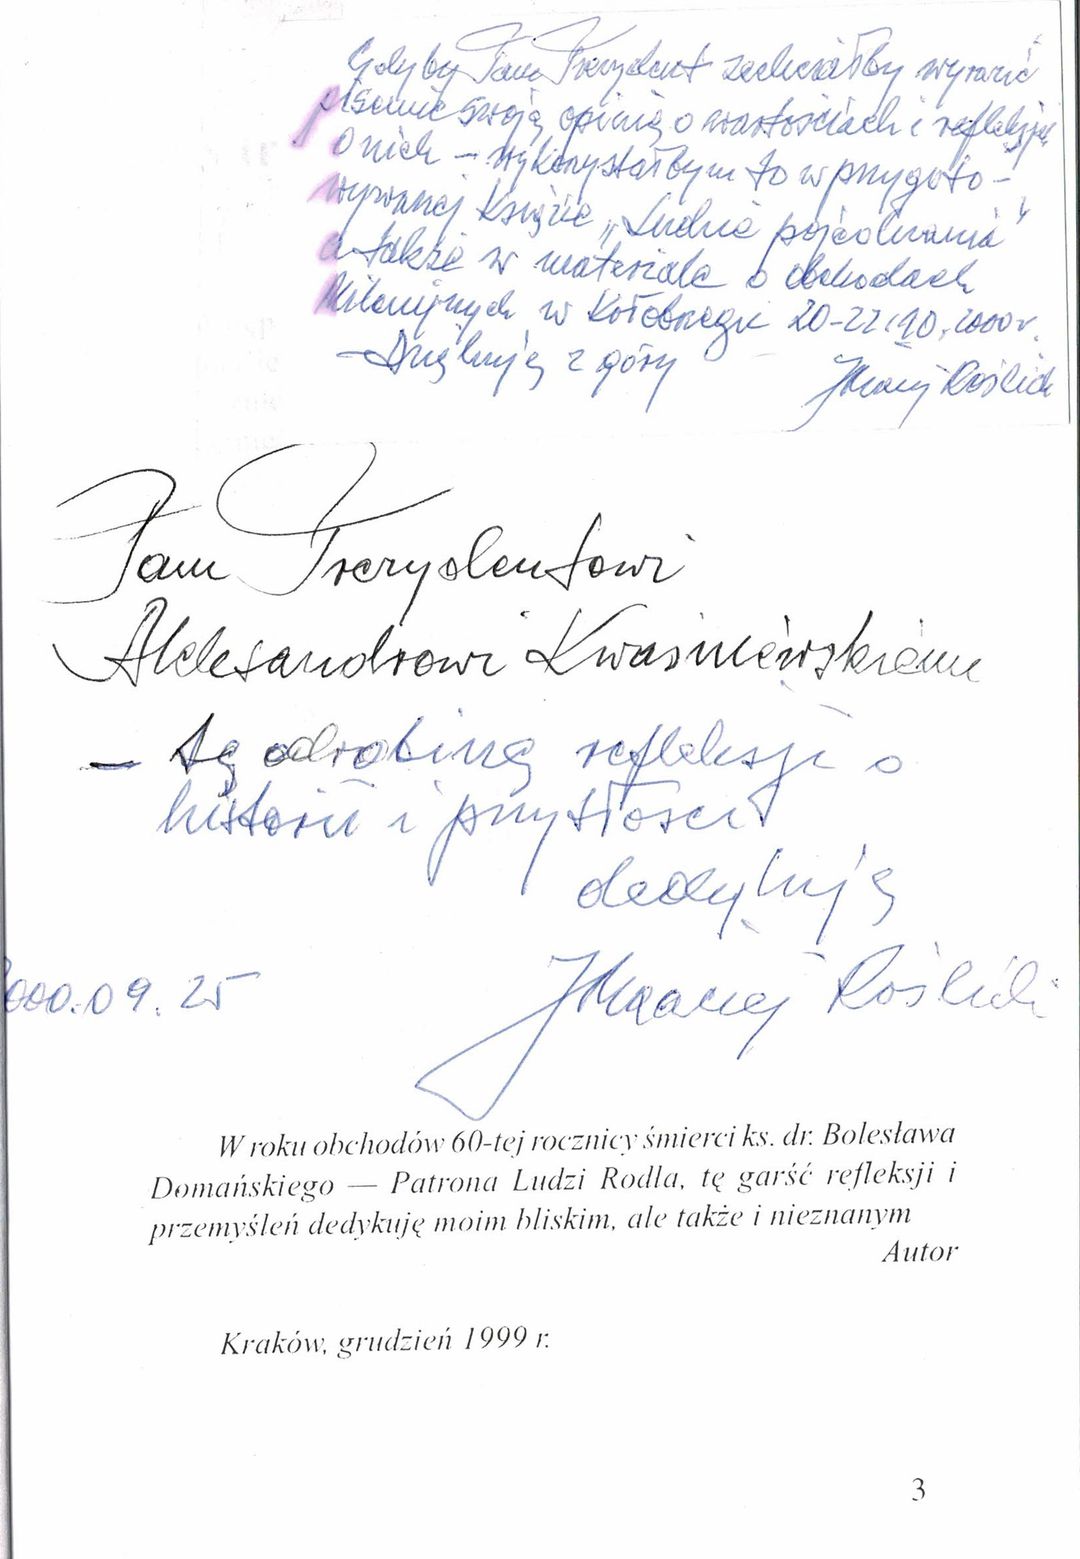 Gdyby Pan Prezydent zechciałby wyrazić
pisemnie swoją opinię o wartościach i refleksje
o nich – wykorzystałbym to w przygoto-
wywanej książce „Ludzie pojednania”
a także w materiale o obchodach
Milenijnych w Kołobrzegu 20-22.10.2000r.
– Dziękuję z góry
Roślicki
Panu Prezydentowi
Aleksandrowi Kwaśniewskiemu
– tę odrobinę refleksji o
historii i przyszłości
dedykuję
2000.09.25 Roślicki
W roku obchodów 60-tej rocznicy śmierci ks. dr. Bolesława
Domańskiego — Patrona Ludzi Rodła, tę garść refleksji i
przemyśleń dedykuję moim bliskim, ale także i nieznanym
Autor
Kraków, grudzień 1999 r.
3